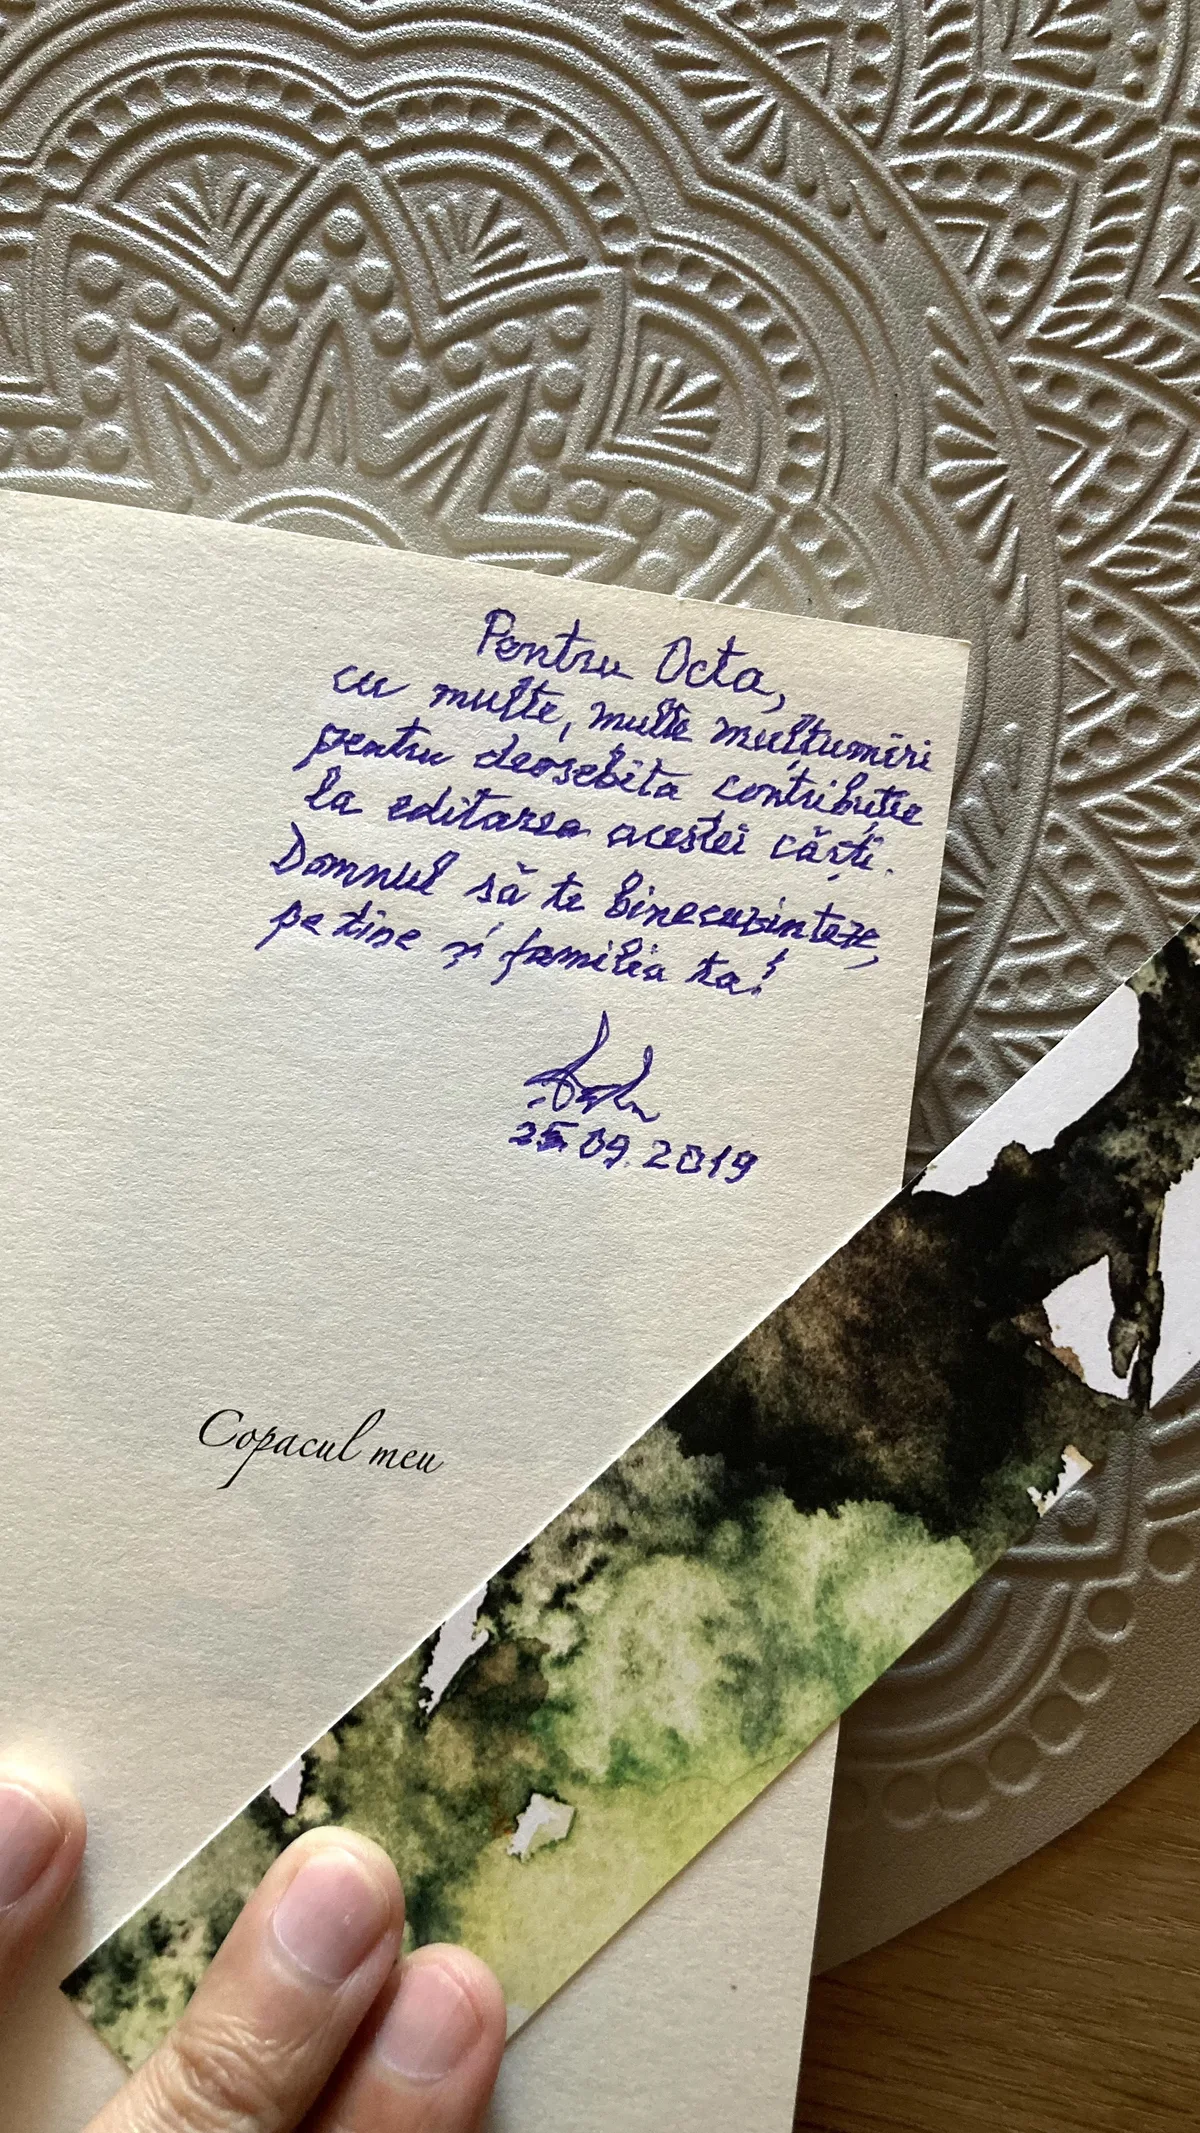 Pentru Octa,
cu multe, multe mulțumiri
pentru deosebita contribuție
la editarea acestei cărți.
Domnul să te binecuvinteze,
pe tine și familia ta!
25.09.2019
Copacul meu